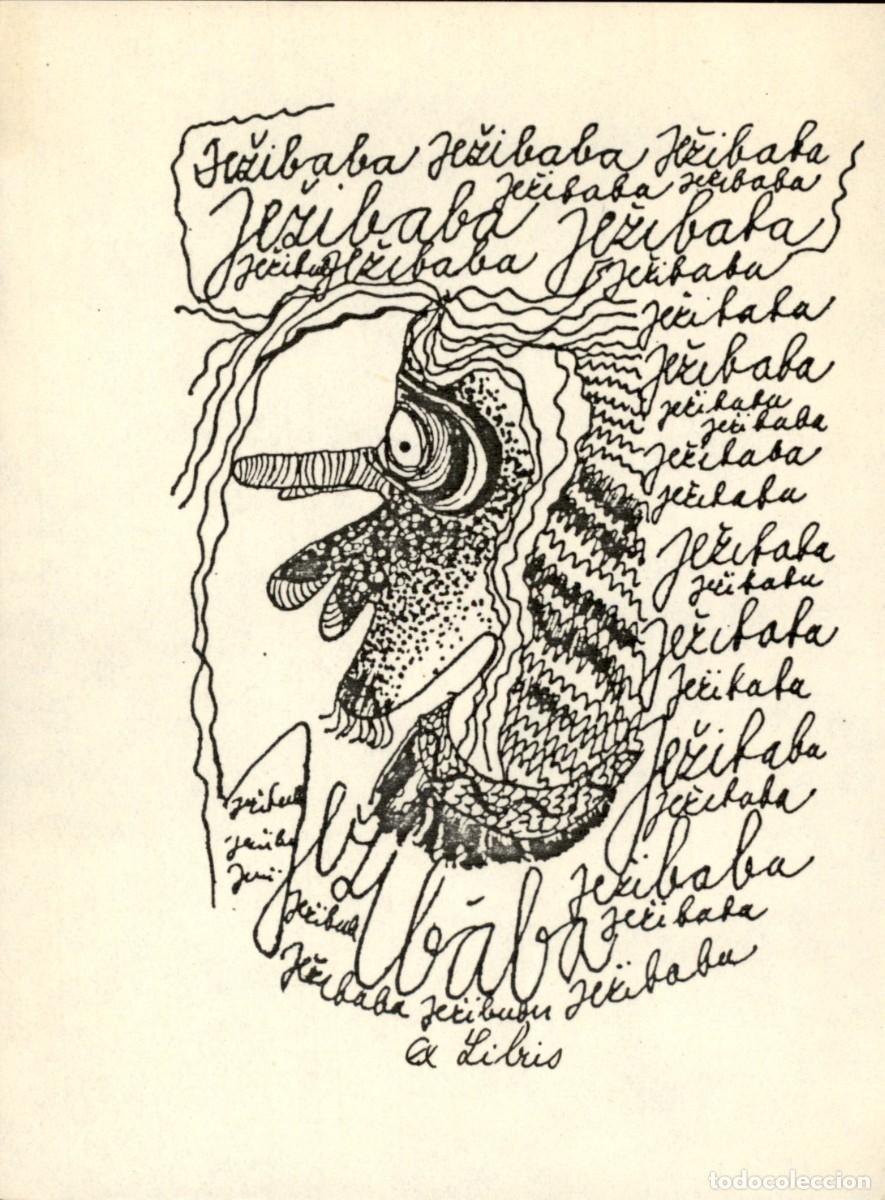 Ježibaba Ježibaba Ježibaba
Ježibaba Ježibaba
Ježibaba Ježibaba
Ježibab Ježibaba Ježibaba
Ježibaba
Ježibaba
Ježibaba
Ježibaba
Ježibaba
Ježibaba
Ježibaba
Ježibaba
Ježibaba
Ježibaba
Ježibaba
Ježibaba
Ježibaba
Ježibába
Ježibaba
Ježibaba
Ježibaba Ježibaba Ježibaba
Ex Libris
todocoleccion